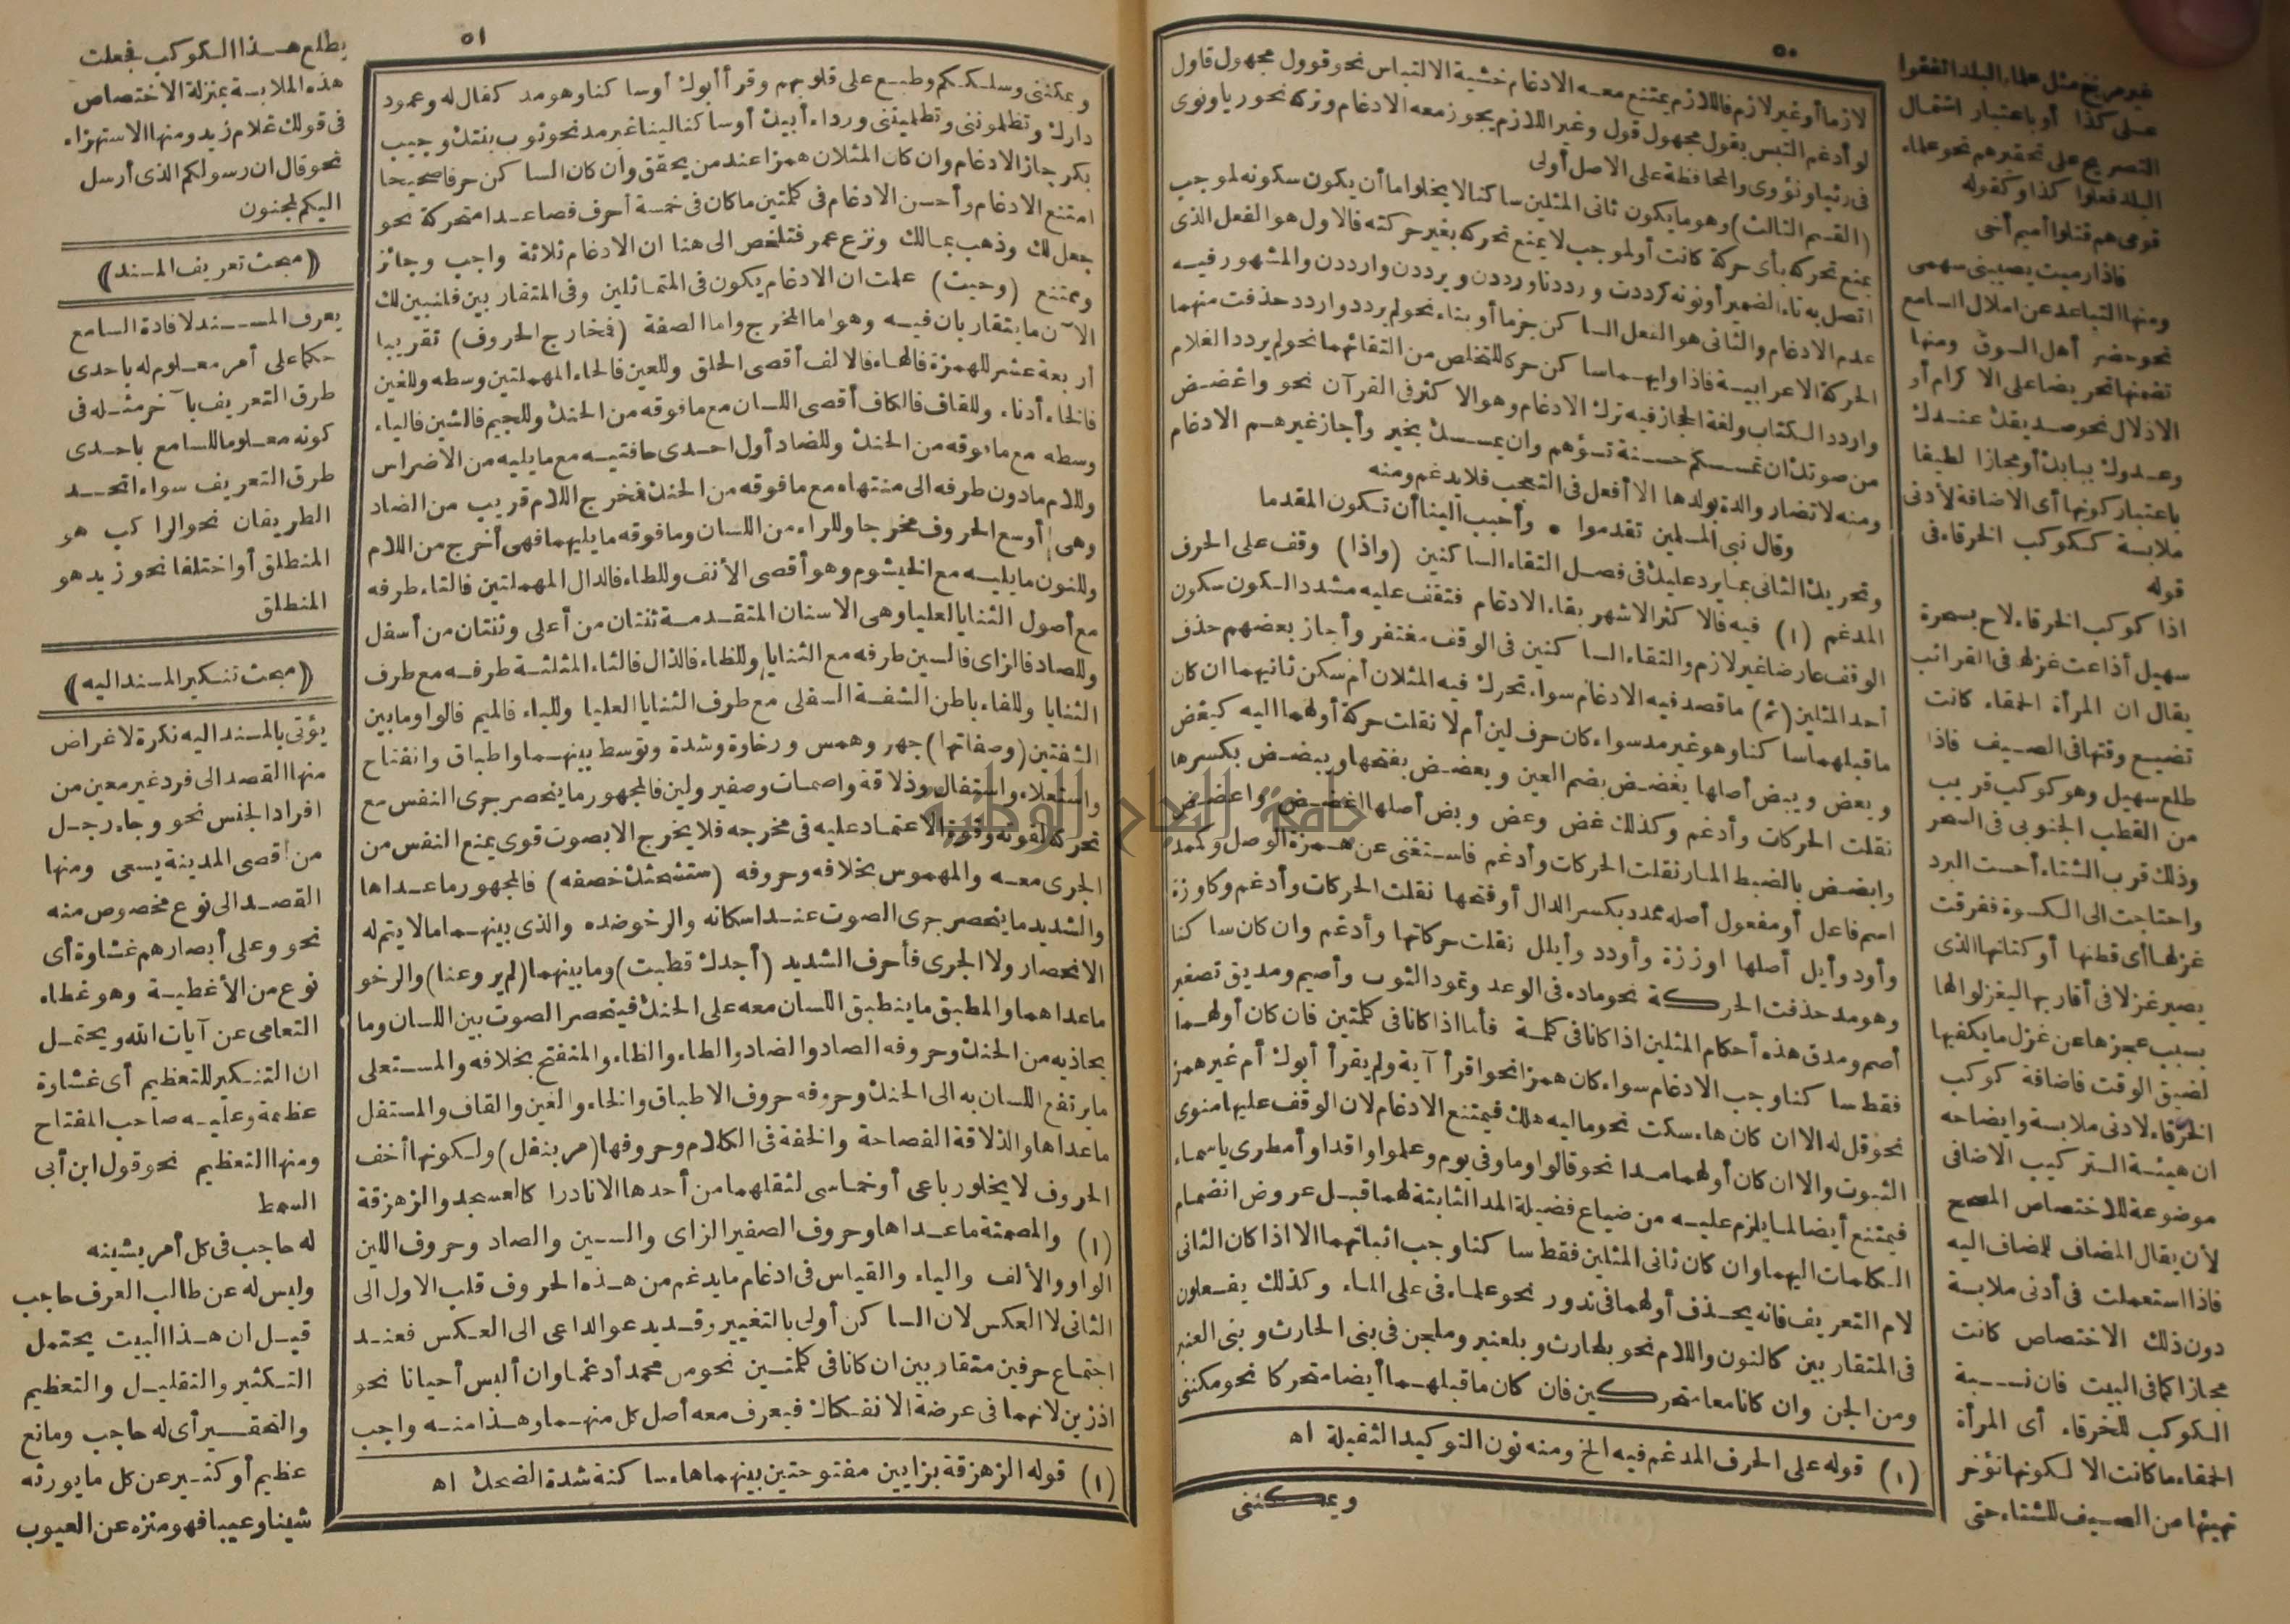 ٥٠
لازما أو غير لازم فاللازم يمتنع معه الادغام خشية الالتباس نحو قوول مجهول قاول
لو أدغم التبس بقول مجهول قول وغير اللازم يجوز معه الادغام وتركه نحو ريا ونوى
فى رئيا ونؤوى والمحافظة على الاصل أولى
(القسم الثالث) وهو ما يكون ثانى المثلين ساكنا لا يخلو اما أن يكون سكونه لموجب
يمنع تحركه بأى حركة كانت أو لموجب لا يمنع تحركه بغير حركته فالاول هو الفعل الذى
اتصل به تاء الضمير أو نونه كرددت ورددنا ورددن ويرددن وارددن والمشهور فيه
عدم الادغام والثانى هو الفعل الساكن جزما أو بناء نحو لم يردد واردد حذفت منهما
الحركة الاعرابية فاذا وليهما ساكن حركا للتخلص من التقائهما نحو لم يردد الغلام
واردد الكتاب ولغة الحجاز فيه ترك الادغام وهو الاكثر فى القرآن نحو واغضض
من صوتك ان تمسسكم حسنة تسؤهم وان يمسسك بخير وأجاز غيرهم الادغام
ومنه لا تضار والدة بولدها الا أفعل فى التعجب فلا يدغم ومنه
وقال نبى المسلمين تقدموا * وأحبب الينا أن تكون المقدما
وتحريك الثانى بما يرد عليك فى فصل التقاء الساكنين (واذا) وقف على الحرف
المدغم (١) فيه فالاكثر الاشهر بقاء الادغام فتقف عليه مشدد السكون سكون
الوقف عارضا غير لازم والتقاء الساكنين فى الوقف مغتفر وأجاز بعضهم حذف
أحد المثلين (ثم) ما قصد فيه الادغام سواء تحرك فيه المثلان أم سكن ثانيهما ان كان
ما قبلهما ساكنا وهو غير مد سواء كان حرف لين أم لا نقلت حركة أولهما اليه كيغض
ويعض ويبض أصلها يغضض بضم العين ويعضض بفتحها ويبضض بكسرها
نقلت الحركات وأدغم وكذلك غض وعض وبض أصلها اغضض واعضض
وابضض بالضبط المار نقلت الحركات وأدغم فاستغنى عن همزة الوصل وكممد
اسم فاعل أو مفعول أصله ممدد بكسر الدال أو فتحها نقلت الحركات وأدغم وكاوزة
وأود وأيل أصلها اوززة وأودد وأيلل نقلت حركاتها وأدغم وان كان ساكنا
وهو مد حذفت الحركة نحو ماده فى الوعد وتمود الثوب وأصيم ومديق تصغير
أصم ومدق هذه أحكام المثلين اذا كانا فى كلمة فأما اذا كانا فى كلمتين فان كان أولهما
فقط ساكنا وجب الادغام سواء كان همزا نحو اقرأ آية ولم يقرأ أبوك أم غير همز
نحو قل له الا ان كان هاء سكت نحو ماليه هلك فيمتنع الادغام لان الوقف عليها منوى
الثبوت والا ان كان أولهما مدا نحو قالوا وما وفى يوم وعلموا واقدا وأمطرى ياسماء
فيمتنع أيضا لما يلزم عليه من ضياع فضيلة المد الثابتة لهما قبل عروض انضمام
الكلمات اليهما وان كان ثانى المثلين فقط ساكنا وجب اثباتهما الا اذا كان الثانى
لام التعريف فانه يحذف أولهما فى ندور نحو علماء فى على الماء وكذلك يفعلون
فى المتقاربين كالنون واللام نحو بلحارث وبلعنبر وملجن فى بنى الحارث وبنى العنبر
ومن الجن وان كانا معا متحركين فان كان ما قبلهما أيضا متحركا نحو مكننى
(١) قوله على الحرف المدغم فيه الخ ومنه نون التوكيد الثقيلة اه
ويمكننى
غير مرنح مثل علماء البلد اتفقوا
على كذا أو باعتبار اشتمال
التصريح على تحقيرهم نحو علماء
البلد فعلوا كذا وكقوله
قومى هم قتلوا أميم أخى
فاذا رميت يصيبنى سهمى
ومنها التباعد عن املال السامع
نحو حضر أهل السوق ومنها
تضمنها تحريضا على الاكرام أو
الاذلال نحو صديقك عندك
وعدوك ببابك أو مجازا لطيفا
باعتبار كونها أى الاضافة لأدنى
ملابسة ككوكب الخرقاء فى
قوله
اذا كوكب الخرقاء لاح بسحرة
سهيل أذاعت غزلها فى القرائب
يقال ان المرأة الحمقاء كانت
تضيع وقتها فى الصيف فاذا
طلع سهيل وهو كوكب قريب
من القطب الجنوبى فى السحر
وذلك قرب الشتاء أحست البرد
واحتاجت الى الكسوة ففرقت
غزلها أى قطنها أو كتانها الذى
يصير غزلا فى أقاربها ليغزلوا لها
بسبب عجزها عن غزل ما يكفيها
لضيق الوقت فاضافة كوكب
الخرقاء لادنى ملابسة وايضاحه
ان هيئة التركيب الاضافى
موضوعة للاختصاص المصحح
لأن يقال المضاف للمضاف اليه
فاذا استعملت فى أدنى ملابسة
دون ذلك الاختصاص كانت
مجازا كما فى البيت فان نسبة
الكوكب للخرقاء أى المرأة
الحمقاء ما كانت الا لكونها تؤخر
تهيئها من الصيف للشتاء حتى
٥١
ويمكننى وسلككم وطبع على قلوبهم وقرأ أبوك أو ساكنا وهو مد كقال له وعمود
دارك وتظلموننى وتظلمينى ورداء أبيك أو ساكنا لينا غير مد نحو ثوب بنتك وجيب
بكر جاز الادغام وان كان المثلان همزا عند من يحقق وان كان الساكن حرفا صحيحا
امتنع الادغام وأحسن الادغام فى كلمتين ما كان فى خمسة أحرف فصاعدا متحركة نحو
جعل لك وذهب بمالك ونزع عمر فتلخص الى هنا ان الادغام ثلاثة واجب وجائز
وممتنع (وحيث) علمت ان الادغام يكون فى المتماثلين وفى المتقاربين فلنبين لك
الآن ما يتقاربان فيه وهو اما المخرج واما الصفة (فمخارج الحروف) تقريبا
أربعة عشر للهمزة فالهاء فالالف أقصى الحلق وللعين فالحاء المهملتين وسطه وللغين
فالخاء أدناه وللقاف فالكاف أقصى اللسان مع ما فوقه من الحنك وللجيم فالشين فالياء
وسطه مع ما فوقه من الحنك وللضاد أول احدى حافتيه مع ما يليه من الاضراس
وللام ما دون طرفه الى منتهاه مع ما فوقه من الحنك فمخرج اللام قريب من الضاد
وهى أوسع الحروف مخرجا وللراء من اللسان وما فوقه ما يليهما فهى أخرج من اللام
وللنون ما يليه مع الخيشوم وهو أقصى الأنف وللطاء فالدال المهملتين فالتاء طرفه
مع أصول الثنايا العليا وهى الاسنان المتقدمة ثنتان من أعلى وثنتان من أسفل
وللصاد فالزاى فالسين طرفه مع الثنايا وللظاء فالذال فالثاء المثلثة طرفه مع طرف
الثنايا وللفاء باطن الشفة السفلى مع طرف الثنايا العليا وللباء فالميم فالواو ما بين
الشفتين (وصفاتها) جهر وهمس ورخاوة وشدة وتوسط بينهما واطباق وانفتاح
واستعلاء واستفال وذلاقة واصمات وصفير ولين فالمجهور ما ينحصر جرى النفس مع
تحركه لقوته وقوة الاعتماد عليه فى مخرجه فلا يخرج الا بصوت قوى يمنع النفس من
الجرى معه والمهموس بخلافه وحروفه (ستشحثك خصفه) فالمجهور ما عداها
والشديد ما ينحصر جرى الصوت عند اسكانه والرخو ضده والذى بينهما ما لا يتم له
الانحصار ولا الجرى فأحرف الشديد (أجدك قطبت) وما بينهما (لم يروعنا) والرخو
ما عداهما والمطبق ما ينطبق اللسان معه على الحنك فينحصر الصوت بين اللسان وما
يحاذيه من الحنك وحروفه الصاد والضاد والطاء والظاء والمنفتح بخلافه والمستعلى
ما يرتفع اللسان به الى الحنك وحروفه حروف الاطباق والخاء والغين والقاف والمستفل
ما عداها والذلاقة الفصاحة والخفة فى الكلام وحروفها (مر بنفل) ولكونها أخف
الحروف لا يخلو رباعى أو خماسى لثقلهما من أحدها الا نادرا كالعسجد والزهزقة
(١) والمصمتة ما عداها وحروف الصفير الزاى والسين والصاد وحروف اللين
الواو والألف والياء والقياس فى ادغام ما يدغم من هذه الحروف قلب الاول الى
الثانى لا العكس لان الساكن أولى بالتغيير وقد يدعو الداعى الى العكس فعند
اجتماع حرفين متقاربين ان كانا فى كلمتين نحو من محمد أدغما وان ألبس أحيانا نحو
اذ زين لانهما فى عرضة الانفكاك فيعرف معه أصل كل منهما وهذا منه واجب
(١) قوله الزهزقة بزايين مفتوحتين بينهما هاء ساكنة شدة الضحك اه
يطلع هذا الكوكب فجعلت
هذه الملابسة بمنزلة الاختصاص
فى قولك غلام زيد ومنها الاستهزاء
نحو قال ان رسولكم الذى أرسل
اليكم لمجنون
﴿مبحث تعريف المسند﴾
يعرف المسند لافادة السامع
حكما على أمر معلوم له باحدى
طرق التعريف بآخر مثله فى
كونه معلوما للسامع باحدى
طرق التعريف سواء اتحد
الطريقان نحو الراكب هو
المنطلق أو اختلفا نحو زيد هو
المنطلق
﴿مبحث تنكير المسند اليه﴾
يؤتى بالمسند اليه نكرة لاغراض
منها القصد الى فرد غير معين من
افراد الجنس نحو وجاء رجل
من أقصى المدينة يسعى ومنها
القصد الى نوع مخصوص منه
نحو وعلى أبصارهم غشاوة أى
نوع من الأغطية وهو غطاء
التعامى عن آيات الله ويحتمل
ان التنكير للتعظيم أى غشاوة
عظيمة وعليه صاحب المفتاح
ومنها التعظيم نحو قول ابن أبى
السمط
له حاجب فى كل أمر يشينه
وليس له عن طالب العرف حاجب
قيل ان هذا البيت يحتمل
التكثير والتقليل والتعظيم
والتحقير أى له حاجب ومانع
عظيم أو كثير عن كل ما يورثه
شينا وعيبا فهو منزه عن العيوب